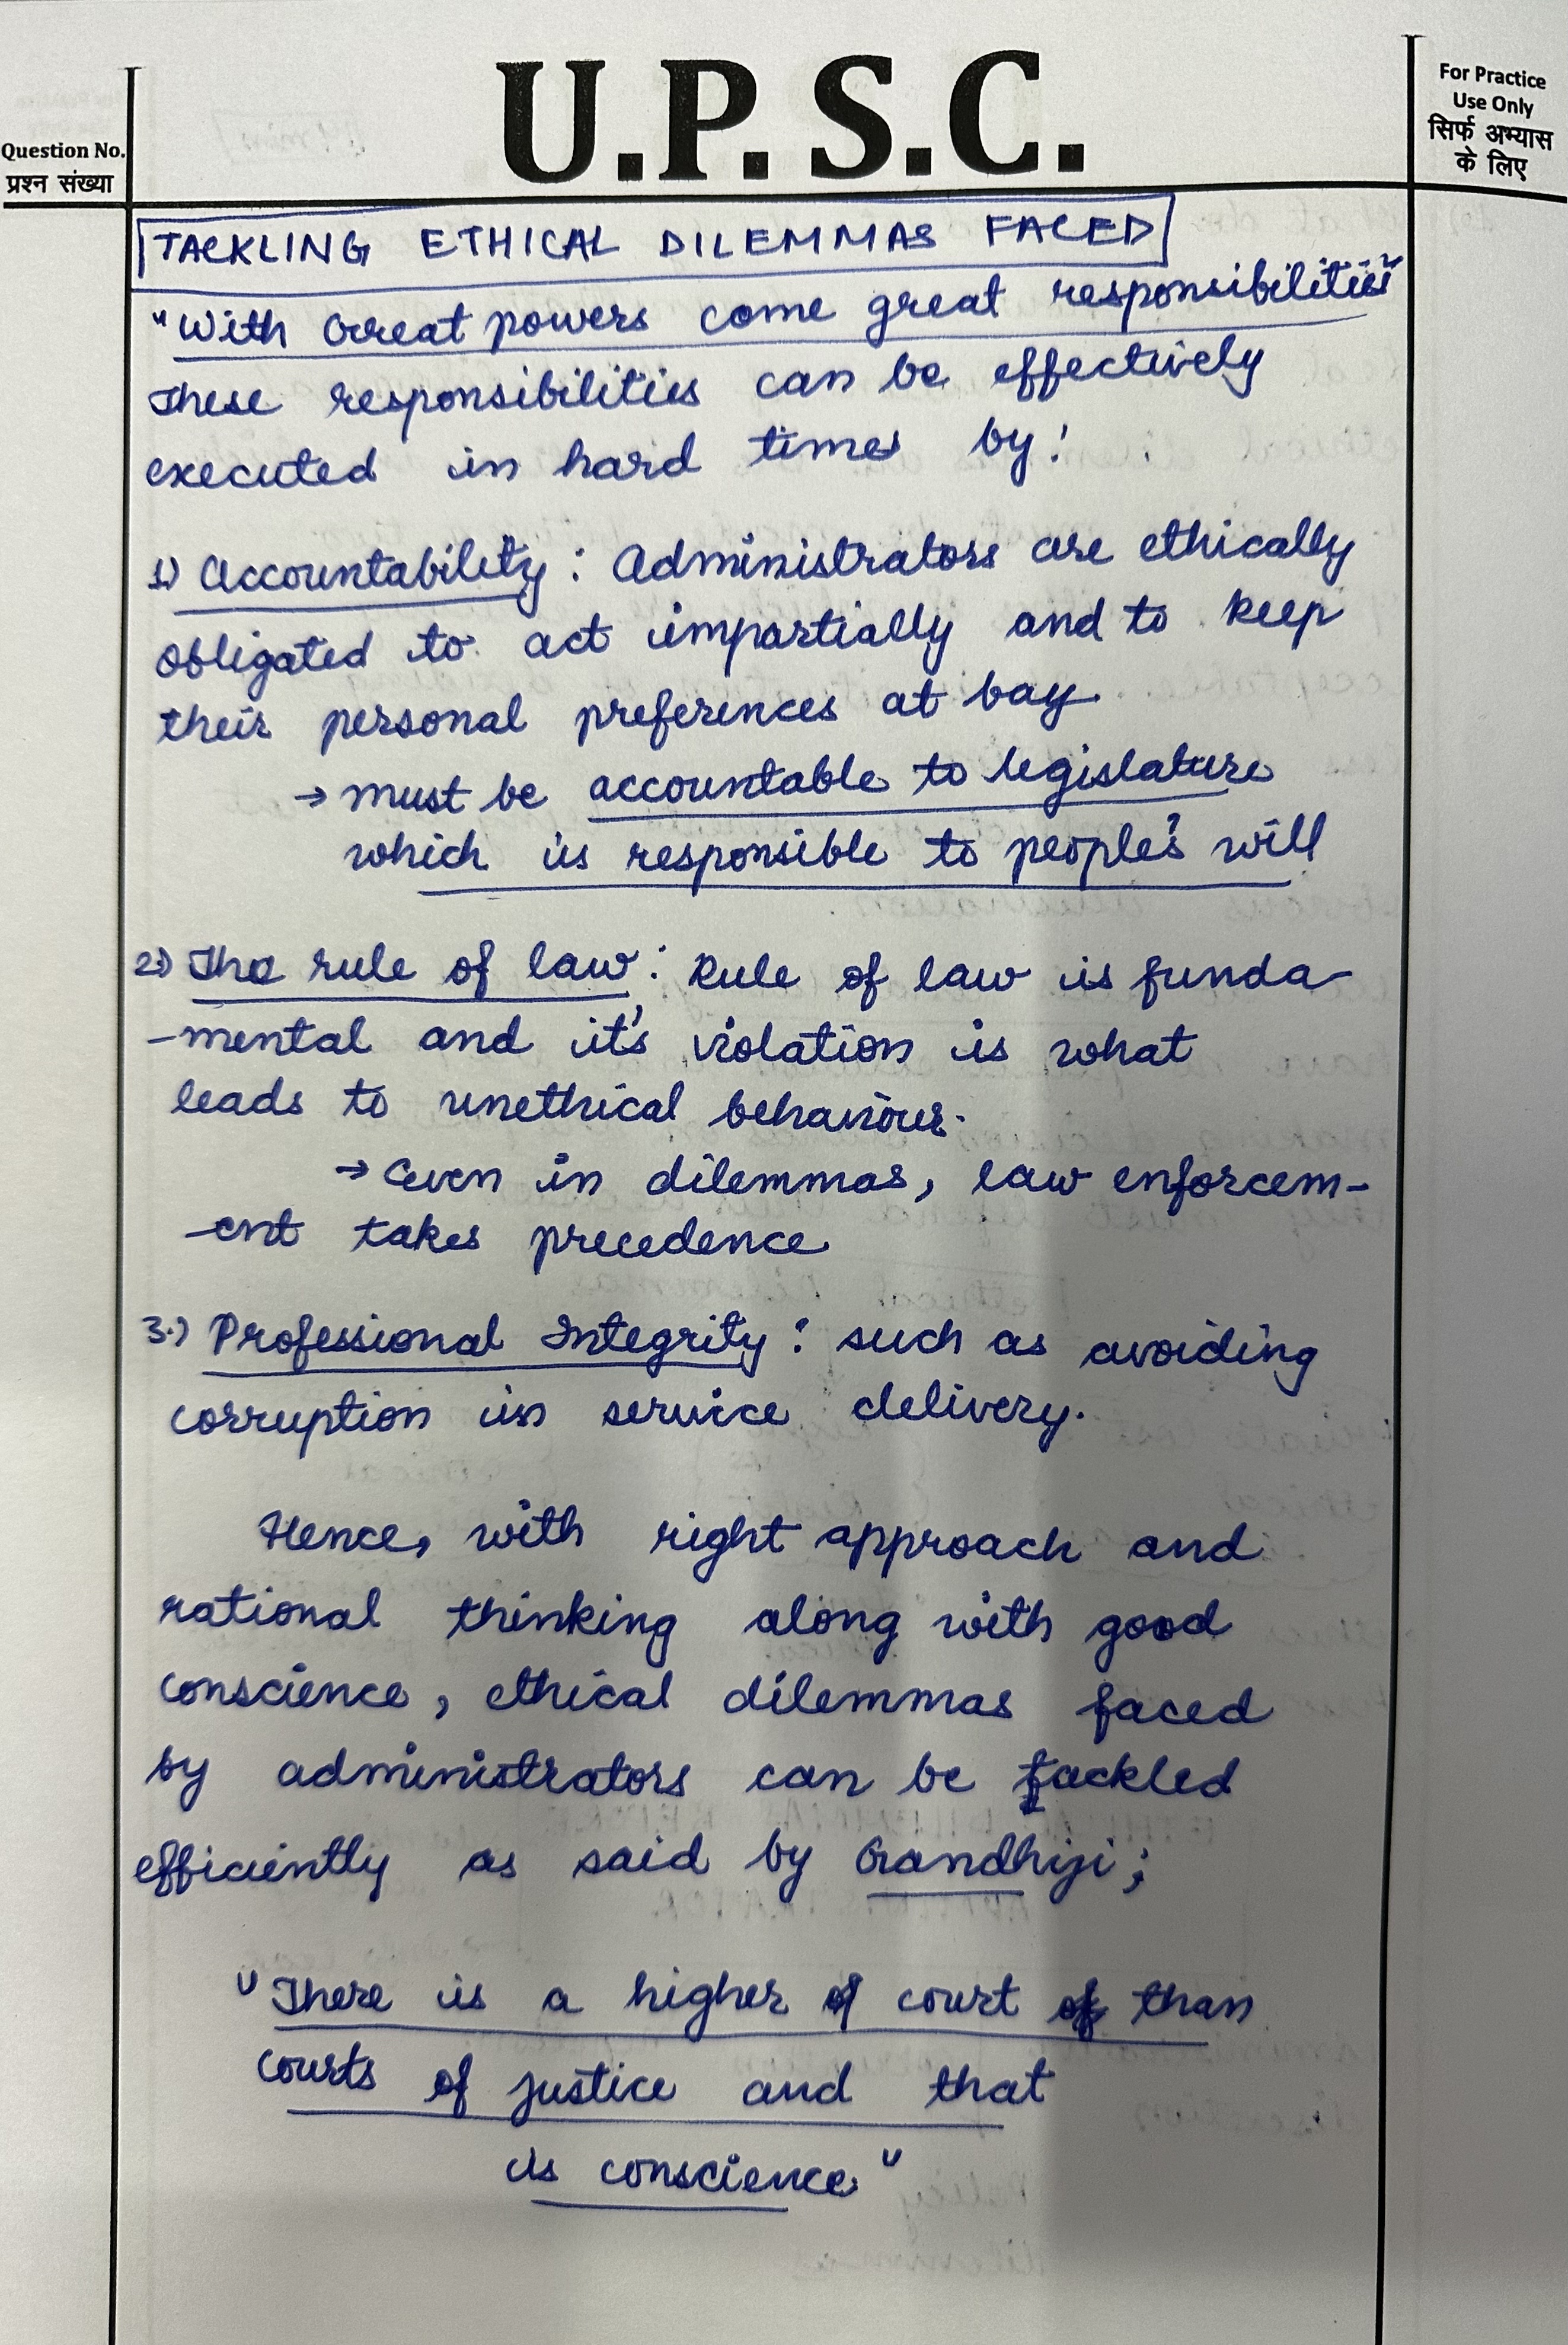 U.P.S.C.
Question No.
प्रश्न संख्या
For Practice
Use Only
सिर्फ अभ्यास
के लिए
TACKLING ETHICAL DILEMMAS FACED
"With Great powers come great responsibilities"
These responsibilities can be effectively
executed in hard times by:
1) Accountability: Administrators are ethically
obligated to act impartially and to keep
their personal preferences at bay.
→ must be accountable to legislature
which is responsible to people's will
2.) The rule of law: Rule of law is funda-
-mental and it's violation is what
leads to unethical behaviour.
→ Even in dilemmas, law enforcem-
-ent takes precedence
3.) Professional Integrity: such as avoiding
corruption in service delivery.
Hence, with right approach and
rational thinking along with good
conscience, ethical dilemmas faced
by administrators can be tackled
efficiently as said by Gandhiji;
"There is a higher court than
courts of justice and that
is conscience"